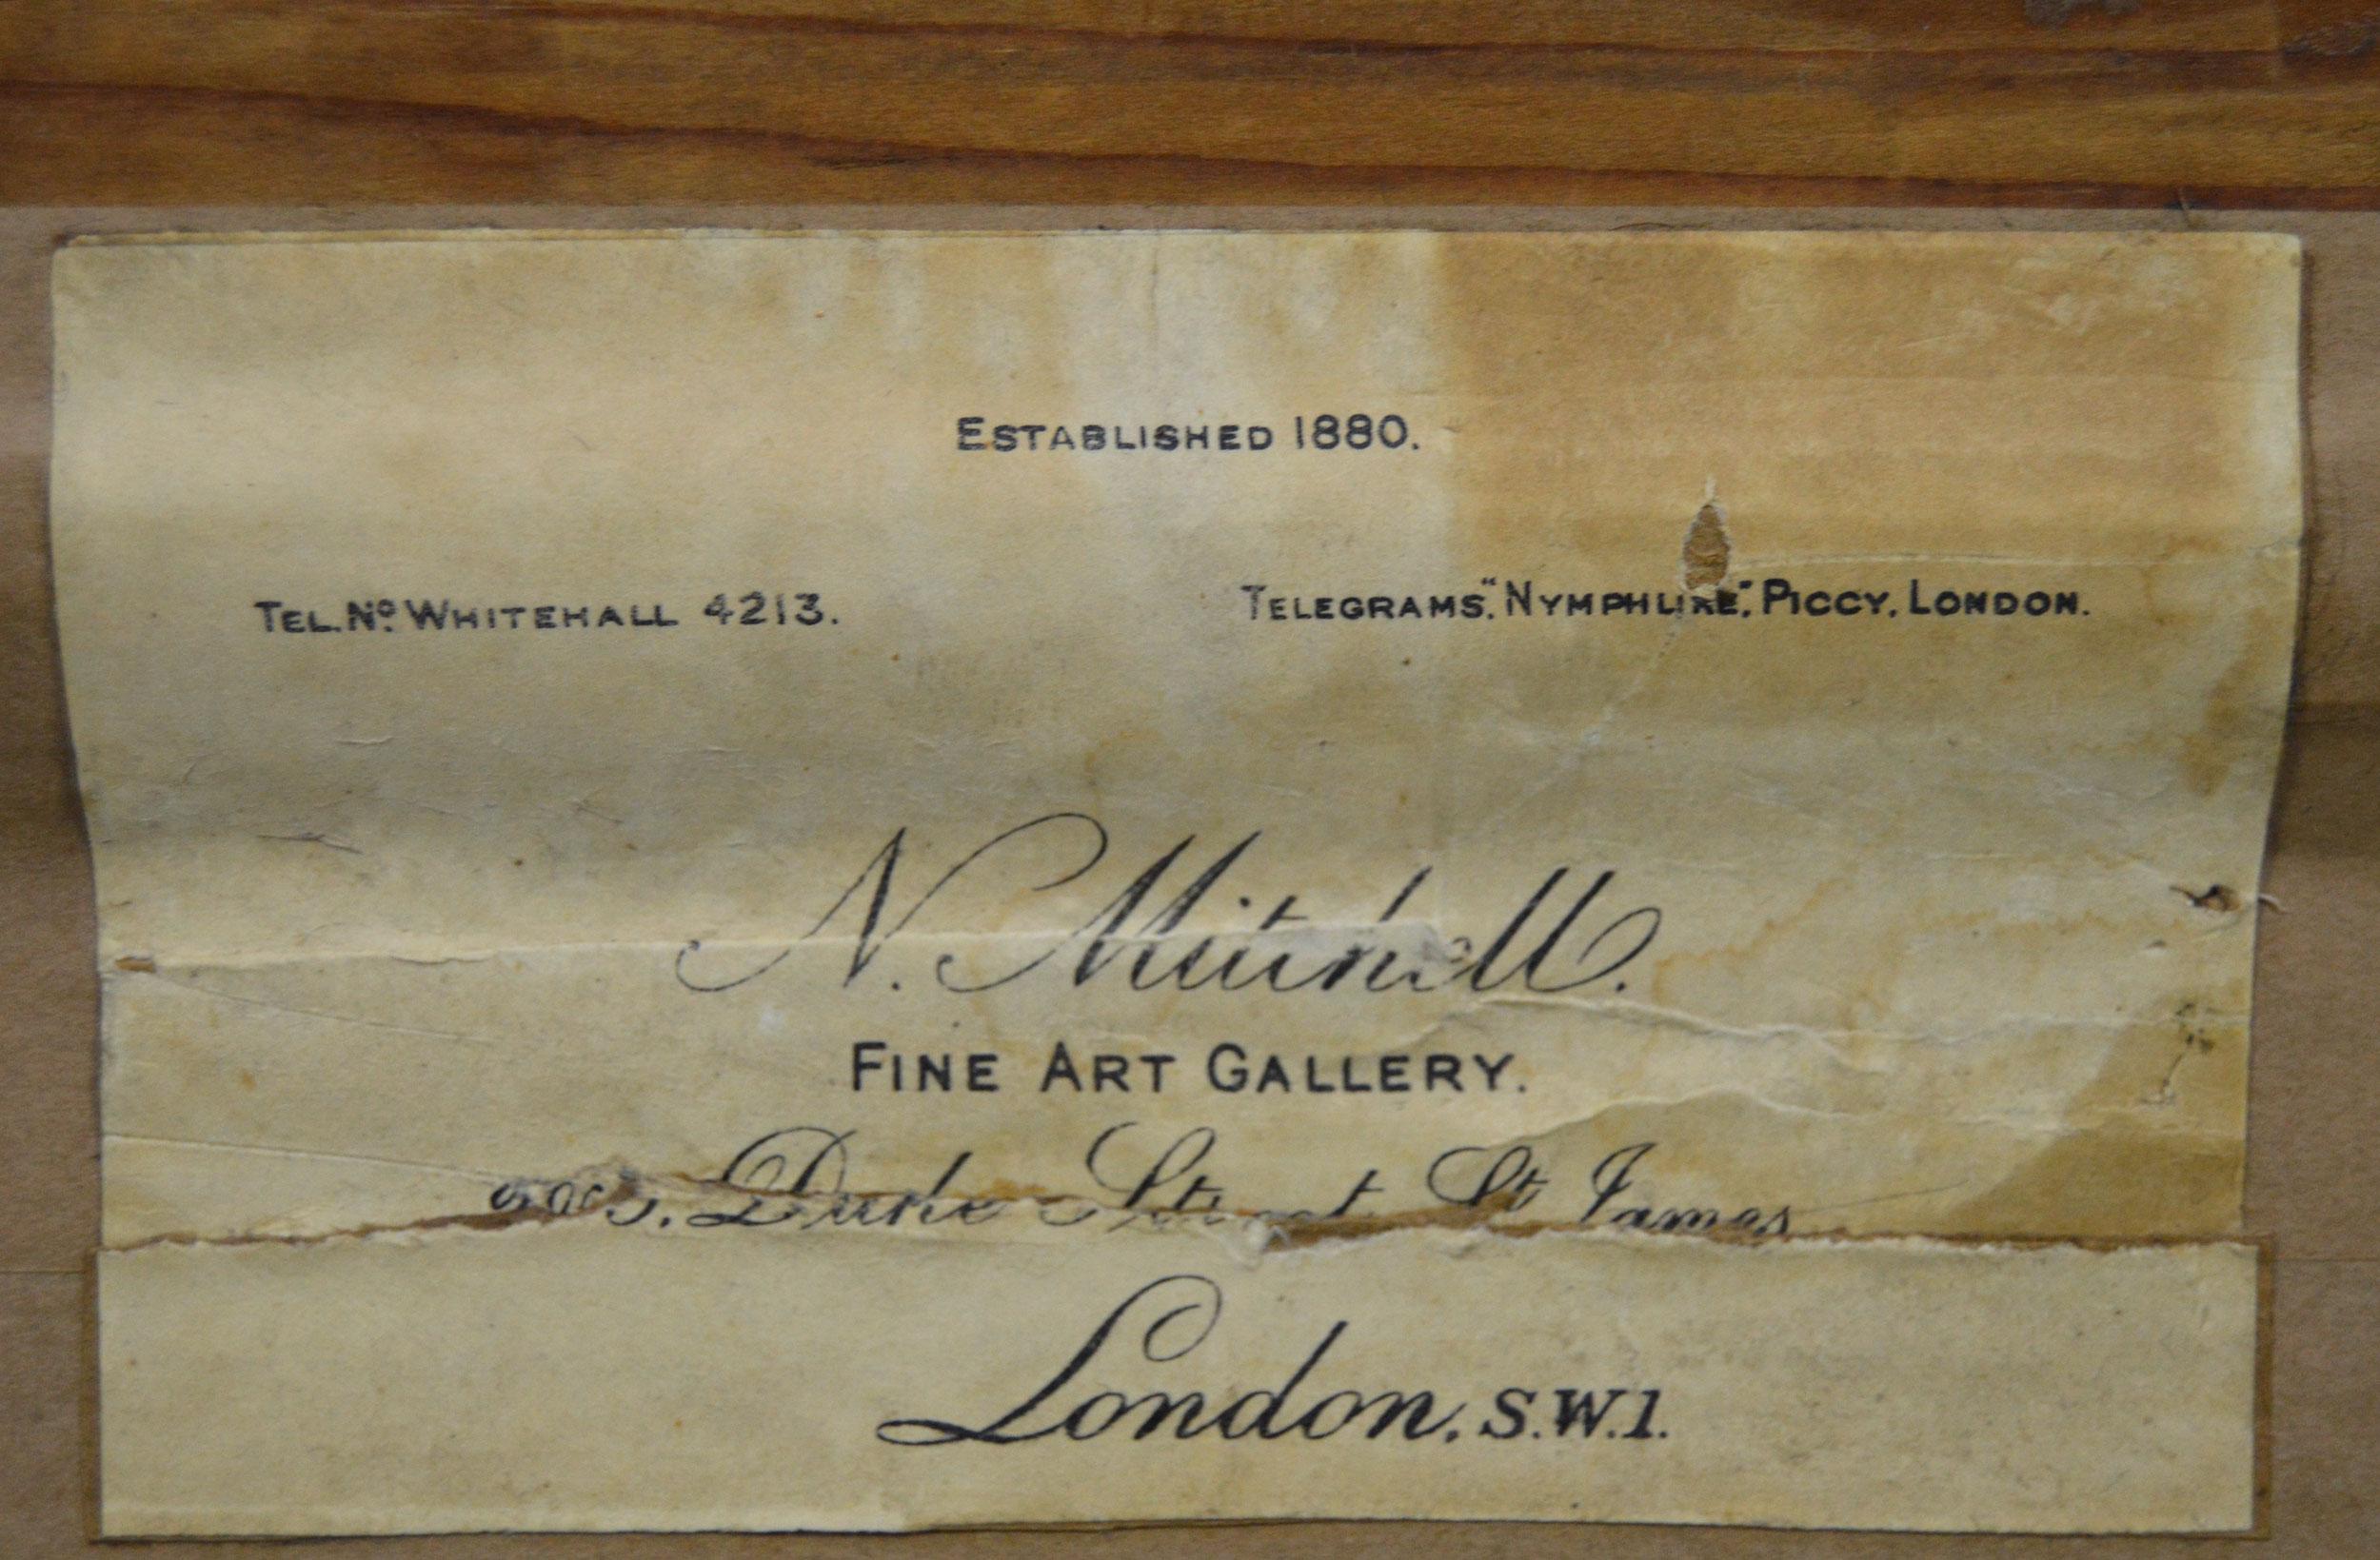 ESTABLISHED 1880.
TEL. Nº WHITEHALL 4213. TELEGRAMS, "NYMPHLIKE", PICCY, LONDON.
N. Mitchell.
FINE ART GALLERY.
Duke Street St James
London. S.W.1.